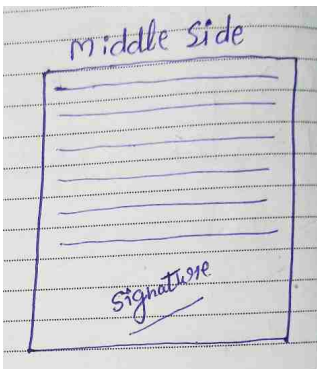 middle Side
Signature